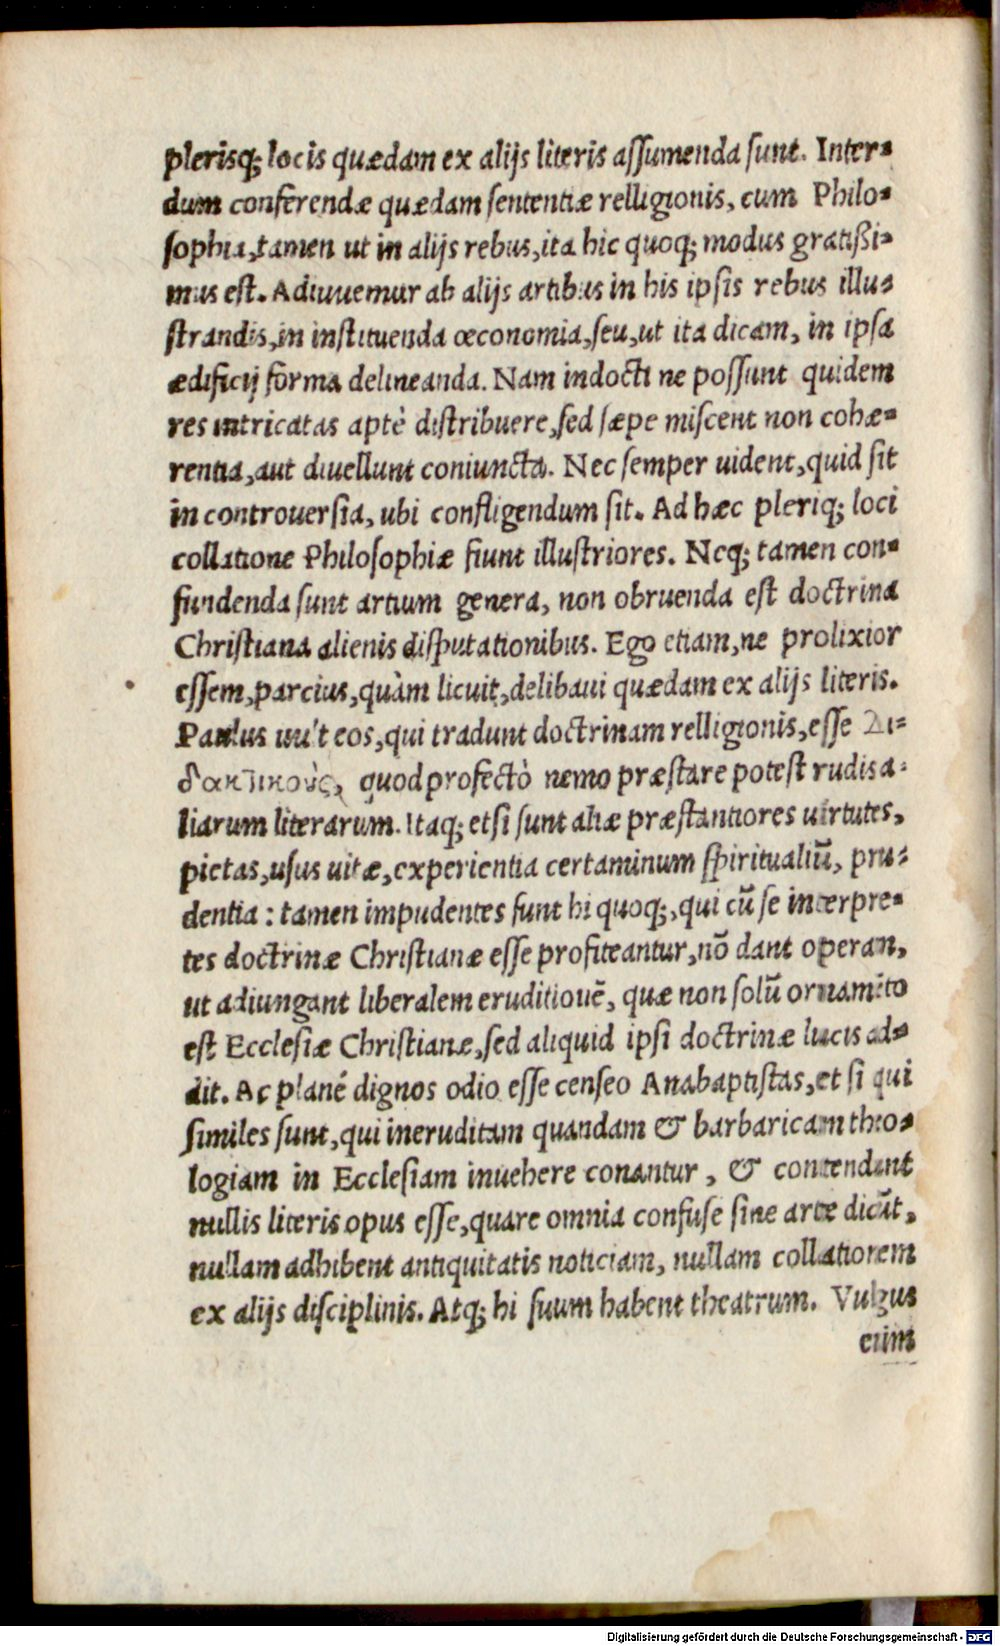 plerisq; locis quædam ex alijs literis aſſumenda ſunt. Inter-
dum conferendæ quædam ſententiæ relligionis, cum Philo-
ſophia, tamen ut in alijs rebus, ita hic quoq; modus gratißi-
mus eſt. Adiuuemur ab alijs artibus in his ipſis rebus illu-
ſtrandis, in inſtituenda œconomia, ſeu, ut ita dicam, in ipſa
ædificij forma delineanda. Nam indocti ne poſſunt quidem
res intricatas aptè diſtribuere, ſed ſæpe miſcent non cohæ-
rentia, aut diuellunt coniuncta. Nec ſemper uident, quid ſit
in controuerſia, ubi confligendum ſit. Ad hæc pleriq; loci
collatione Philoſophiæ fiunt illuſtriores. Neq; tamen con-
fundenda ſunt artium genera, non obruenda eſt doctrina
Chriſtiana alienis diſputationibus. Ego etiam, ne prolixior
eſſem, parcius, quàm licuit, delibaui quædam ex alijs literis.
Paulus uult eos, qui tradunt doctrinam relligionis, eſſe Δι-
δακτικοὺς, quod profectò nemo præſtare poteſt rudis a-
liarum literarum. Itaq; etſi ſunt aliæ præſtantiores uirtutes,
pietas, uſus uitæ, experientia certaminum ſpiritualiū, pru-
dentia: tamen impudentes ſunt hi quoq;, qui cū ſe interpre-
tes doctrinæ Chriſtianæ eſſe profiteantur, nō dant operam,
ut adiungant liberalem eruditionē, quæ non ſolū ornamēto
eſt Eccleſiæ Chriſtianæ, ſed aliquid ipſi doctrinæ lucis ad-
dit. Ac planè dignos odio eſſe cenſeo Anabaptiſtas, et ſi qui
ſimiles ſunt, qui ineruditam quandam & barbaricam theo-
logiam in Eccleſiam inuehere conantur, & contendunt
nullis literis opus eſſe, quare omnia confuſe ſine arte dicūt,
nullam adhibent antiquitatis noticiam, nullam collationem
ex alijs diſciplinis. Atq; hi ſuum habent theatrum. Vulgus
cum
Digitalisierung gefördert durch die Deutsche Forschungsgemeinschaft - DFG